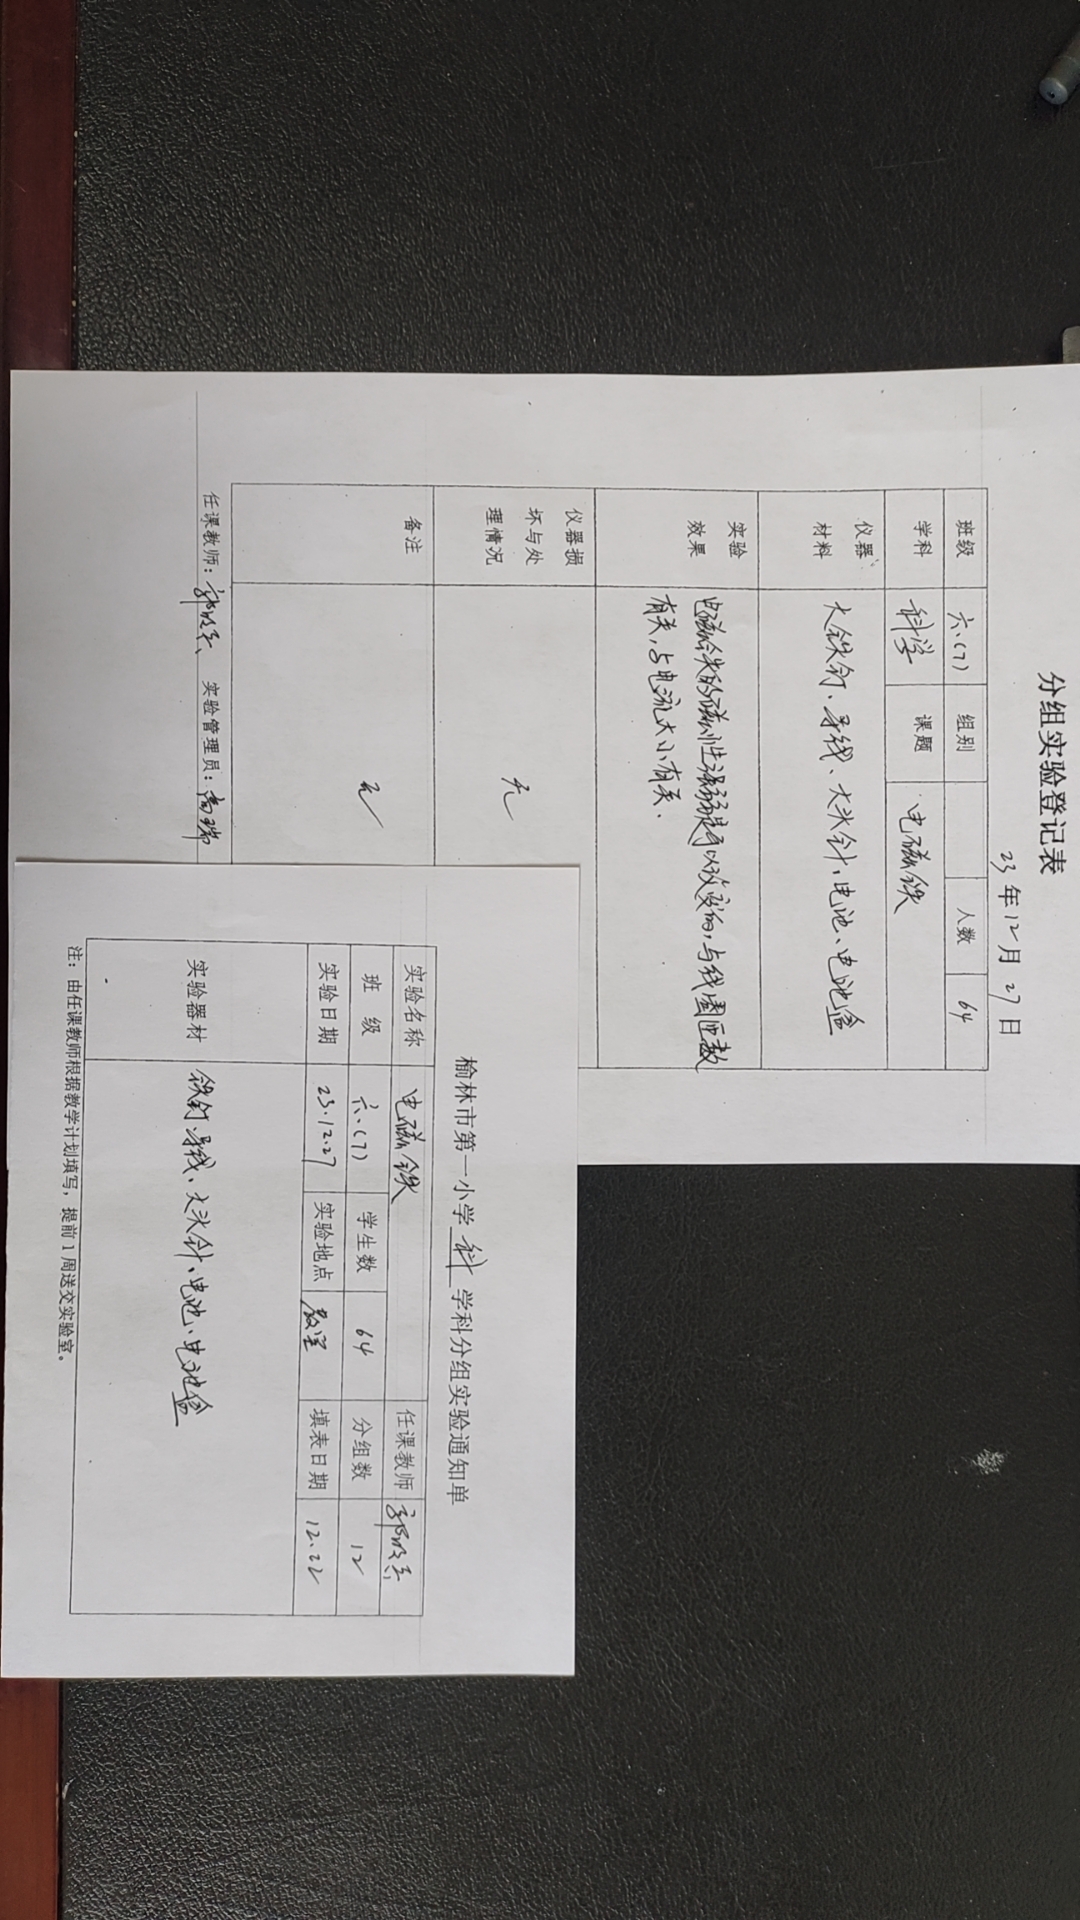 分组实验登记表
23年12月27日
班级 六.(7) 组别 人数 64
学科 科学 课题 电磁铁
仪器材料 大铁钉、导线、大头针、电池、电池盒
实验效果 电磁铁的磁性强弱是可以改变的,与线圈匝数
有关,与电流大小有关.
仪器损坏与处理情况 无
备注 无
任课教师: 实验管理员:
榆林市第一小学 科 学科分组实验通知单
实验名称 电磁铁 任课教师
班级 六.(7) 学生数 64 分组数 12
实验日期 23.12.27 实验地点 教室 填表日期 12.22
实验器材 铁钉、导线、大头针、电池、电池盒
注:由任课教师根据教学计划填写,提前1周送交实验室。